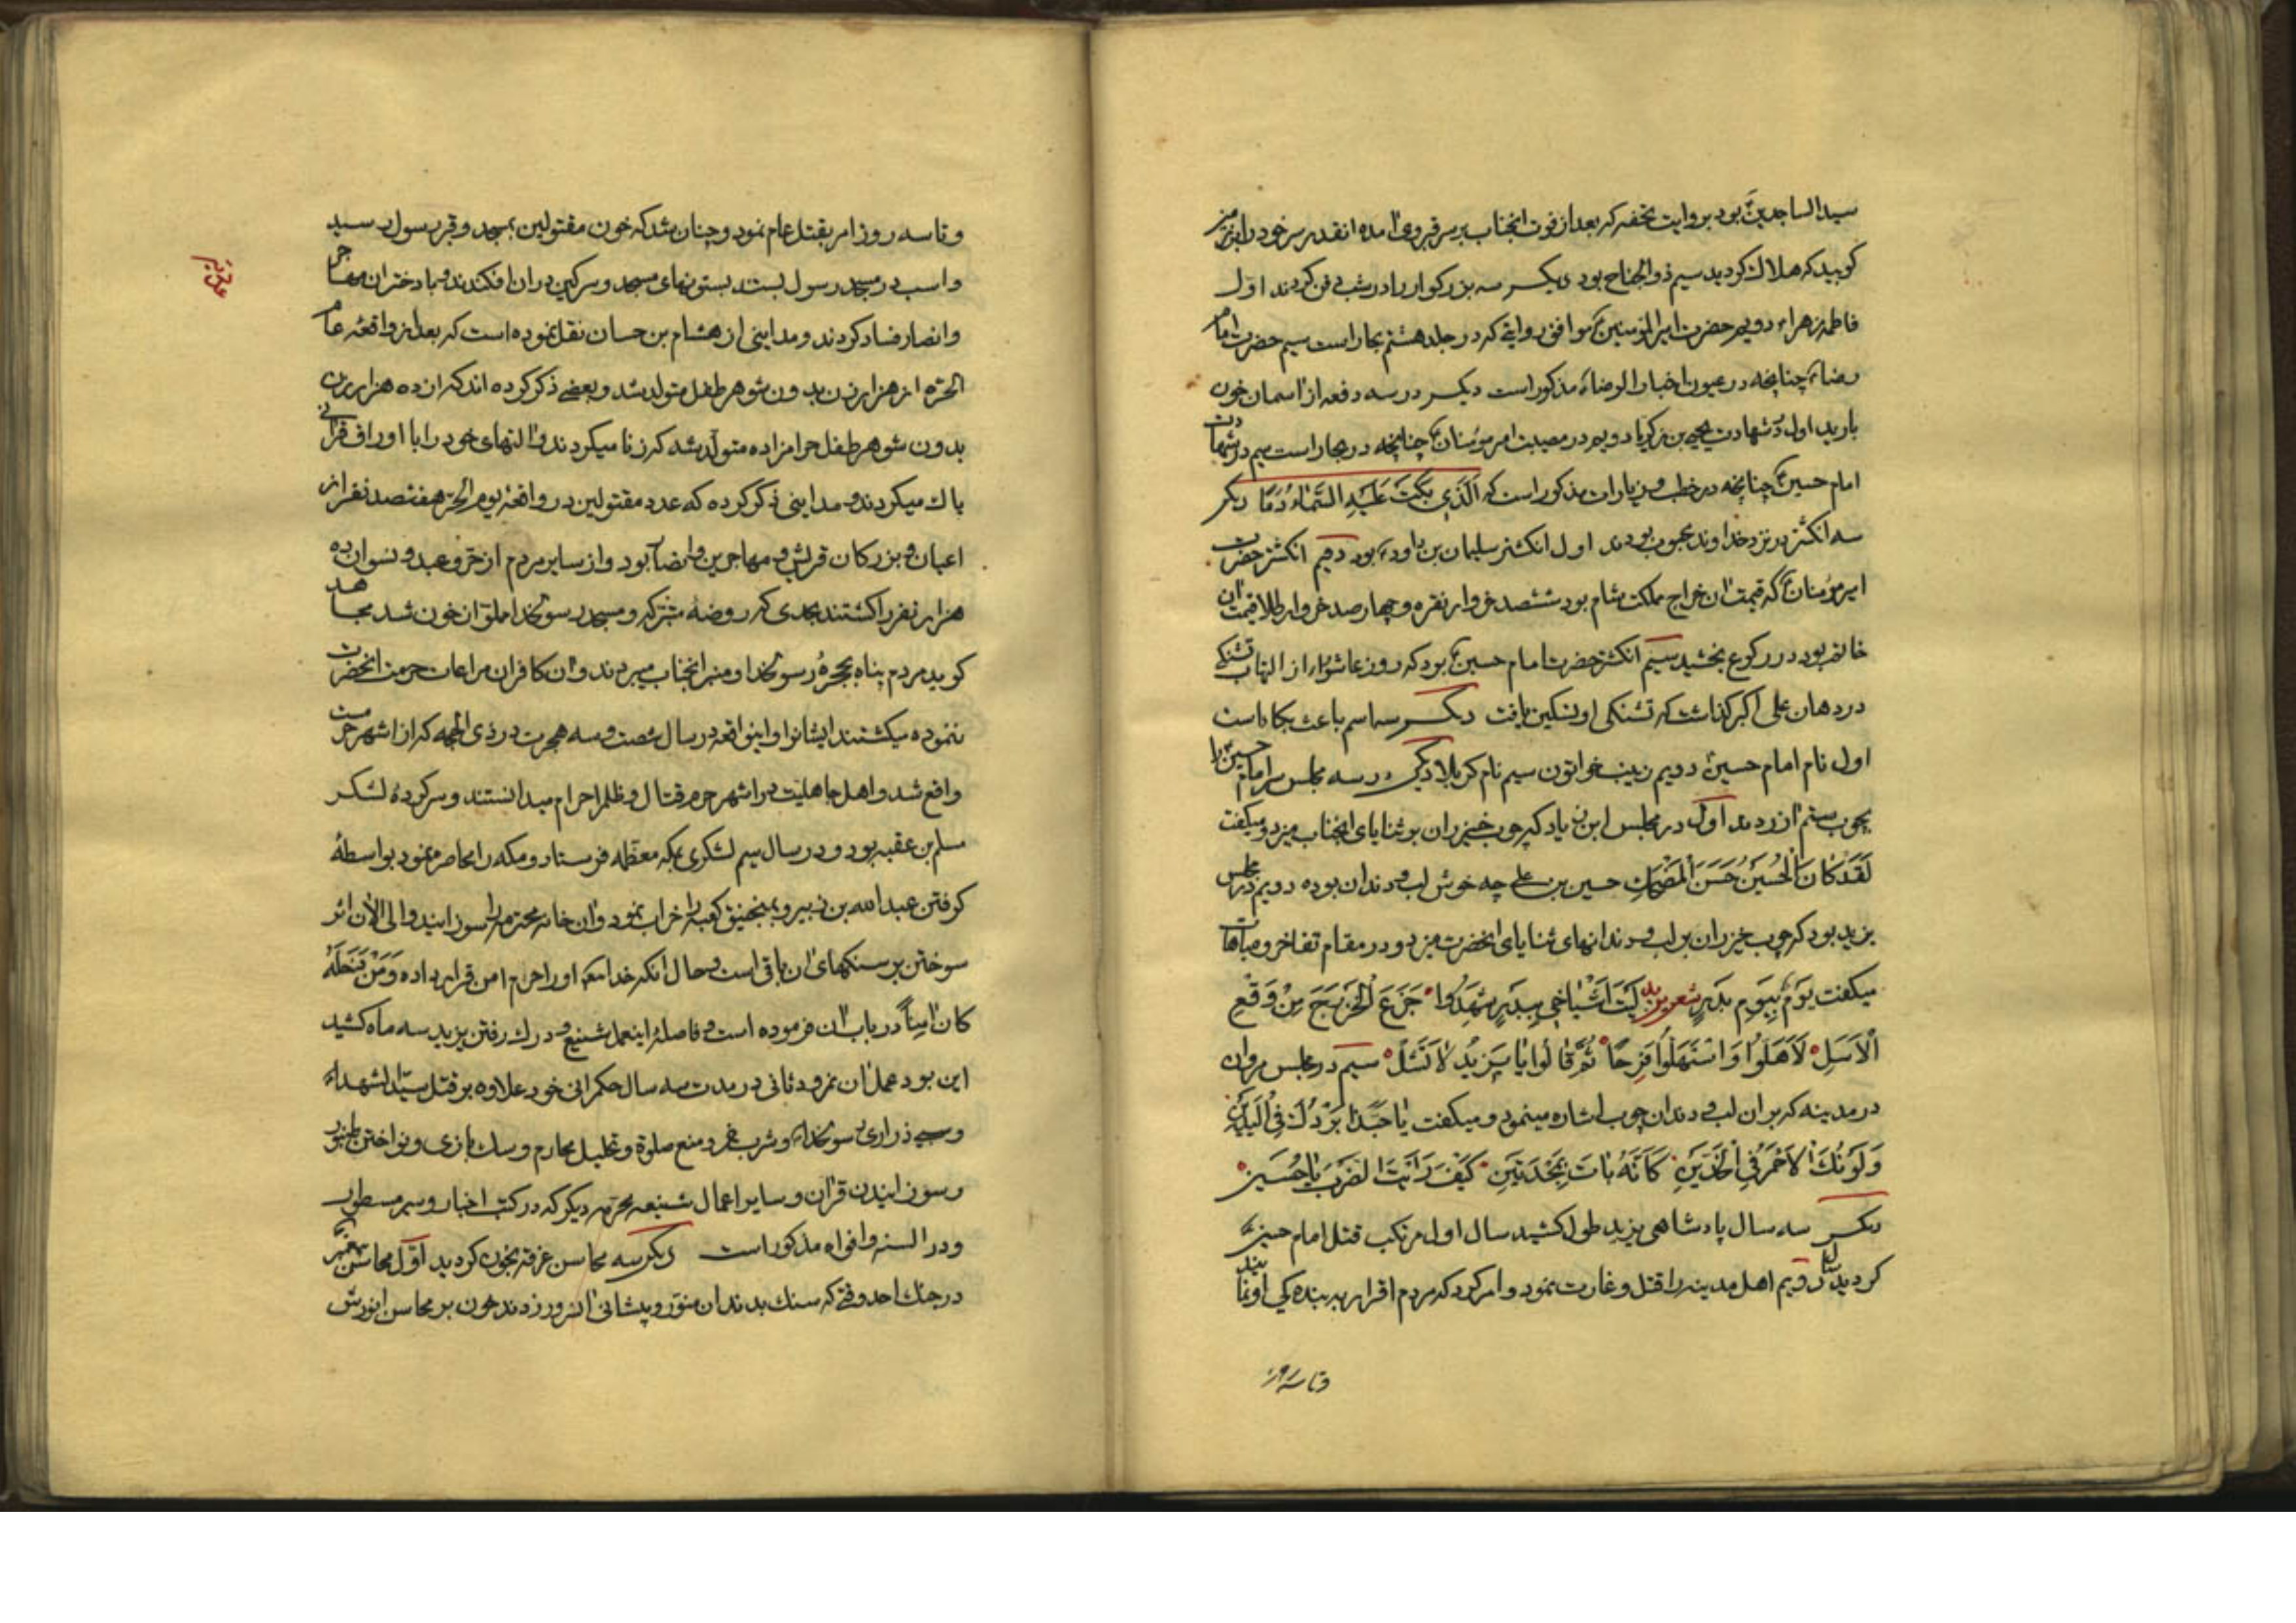 سیدالساجدینؑ بود بروایت تحفه که بعد از فوت انجناب بر سر قبر وی امده انقدر سر خود را بر زمین
کوبید که هلاک کردید سیم ذوالجناح بود دیکر سه بزرکوار را در شب دفن کردند اول
فاطمه زهراء دویم حضرت امیرالمومنینؑ موافق روایتی که در جلد هشتم بحار است سیم حضرت امام
رضاؑ چنانچه در عیون اخبار الرضاؑ مذکور است دیکر در سه دفعه از اسمان خون
بارید اول در شهادت یحیی بن زکریا دویم در مصیبت امیر مؤمنانؑ چنانچه در بحار است سیم در شهادت
امام حسینؑ چنانچه در خطب و زیارات مذکور است که اَلَّذی بَکَتْ عَلَیْهِ السَّمٰاءُ دَمًا دیکر
سه انکشتر در نزد خداوند محبوب بودند اول انکشتر سلیمان بن داودؑ بود دویم انکشتر حضرت
امیر مؤمنانؑ که قیمت ان خراج مملکت شام بود ششصد خروار نقره و چهارصد خروار طلا قیمت ان
خاتم بود در رکوع بخشید سیم انکشتر حضرت امام حسینؑ بود که روز عاشورا از التهاب تشنکی
در دهان علی اکبر کذاشت که تشنکی او تسکین یافت دیکر سه اسم باعث بکاء است
اول نام امام حسینؑ دویم زینب خواتون سیم نام کربلا دیکر در سه مجلس سر امام حسینؑ را
بچوب ستم ازردند اول در مجلس ابن زیاد که چوب خیزران بر ثنایای انجناب میزد و میکفت
لَقَدْ کٰانَ الْحُسَیْنُ حَسَنَ الْمَضْحَکِ حسین بن علی چه خوش لب و دندان بوده دویم در مجلس
یزید بود که چوب خیزران بر لب و دندانهای ثنایای انحضرت میزد و در مقام تفاخر و مباهات
میکفت یَوْمٌ بِیَوْمِ بَدْرٍ شعر یزید لَیْتَ اَشْیٰاخی بِبَدْرٍ شَهِدُوا جَزَعَ الْخَزْرَجِ مِنْ وَقْعِ
الْاَسَلِ لَاَهَلُّوا وَاسْتَهَلُّوا فَرَحًا ثُمَّ قٰالُوا یٰا یَزیدُ لٰا تَشَلْ سیم در مجلس مروان
در مدینه که بر ان لب و دندان چوب اشاره مینمود و میکفت یٰا حَبَّذٰا بَرْدُکَ فِی الْیَدَیْنِ
وَلَوْنُکَ الْاَحْمَرُ فِی الْخَدَّیْنِ کَاَنَّهُ بٰاتَ بِمَجْسَدَیْنِ کَیْفَ رَاَیْتَ الضَّرْبَ یٰا حُسَیْن
دیکر سه سال پادشاهی یزید طول کشید سال اول مرتکب قتل امام حسینؑ
کردید سال دویم اهل مدینه را قتل و غارت نمود و امر کرد که مردم اقرار به بنده کی او نمایند
و تا سه روز
و تا سه روز امر بقتل عام نمود و چنان شد که خون مقتولین بمسجد و قبر رسول رسید
و اسب در مسجد رسول بستند بستونهای مسجد و سرکین در ان افکندند و با دختران مهاجر
و انصار فساد کردند و مداینی از هشام بن حسان نقل نموده است که بعد از واقعه عام
الحرّه از هزار زن بدون شوهر طفل متولد شد و بعضی ذکر کرده اند که از ده هزار زن
بدون شوهر طفل حرامزاده متولد شد که زنا میکردند و التهای خود را با اوراق قرانی
پاک میکردند و مداینی ذکر کرده که عدد مقتولین در واقعه یوم الحرّه هفتصد نفر از
اعیان و بزرکان قریش و مهاجرین و انصار بود و از سایر مردم از حرّ و عبد و نسوان ده
هزار نفر را کشتند بحدی که روضه متبرکه و مسجد رسولخدا مملوّ از خون شد مجاهد
کوید مردم پناه بحجرهٔ رسولخدا و منبر انجناب میبردند و ان کافران مراعات حرمت انحضرت
ننموده میکشتند ایشانرا و اینواقعه در سال شصت و سه هجرت در ذی الحجه که از اشهر حرمت
واقع شد و اهل جاهلیّت در اشهر حرم قتال و ظلم را حرام میدانستند و سرکردهٔ لشکر
مسلم بن عقبه بود و در سال سیم لشکری بمکه معظّمه فرستاد و مکه را محاصره نمود بواسطهٔ
کرفتن عبدالله بن زبیر و بمنجنیق کعبه را خراب نمود و ان خانه محترم را سوزانید و الی الان اثر
سوختن بر سنکهای ان باقی است و حال انکه خدا مکه او را حرم امن قرار داده وَمَنْ دَخَلَهُ
کٰانَ اٰمِناً در باب ان فرموده است و فاصلهٔ اینعمل شنیع و درک رفتن یزید سه ماه کشید
این بود عمل ان نمرود ثانی در مدت سه سال حکمرانی خود علاوه بر قتل سیّدالشهداءؑ
و سبی ذراری رسولخداؐ و شرب خمر و منع صلوة و تحلیل محارم و سک بازی و نواختن طنبور
و سوزانیدن قران و سایر اعمال شنیعه محرّمه دیکر که در کتب اخبار و سیر مسطور
و در السنه و افواه مذکور است دیکر سه محاسن غرقه بخون کردید اوّل محاسن پیغمبرؐ
در جنک احد وقتی که سنک بدندان منوّر و پیشانی انسرور زدند خون بر محاسن انورش